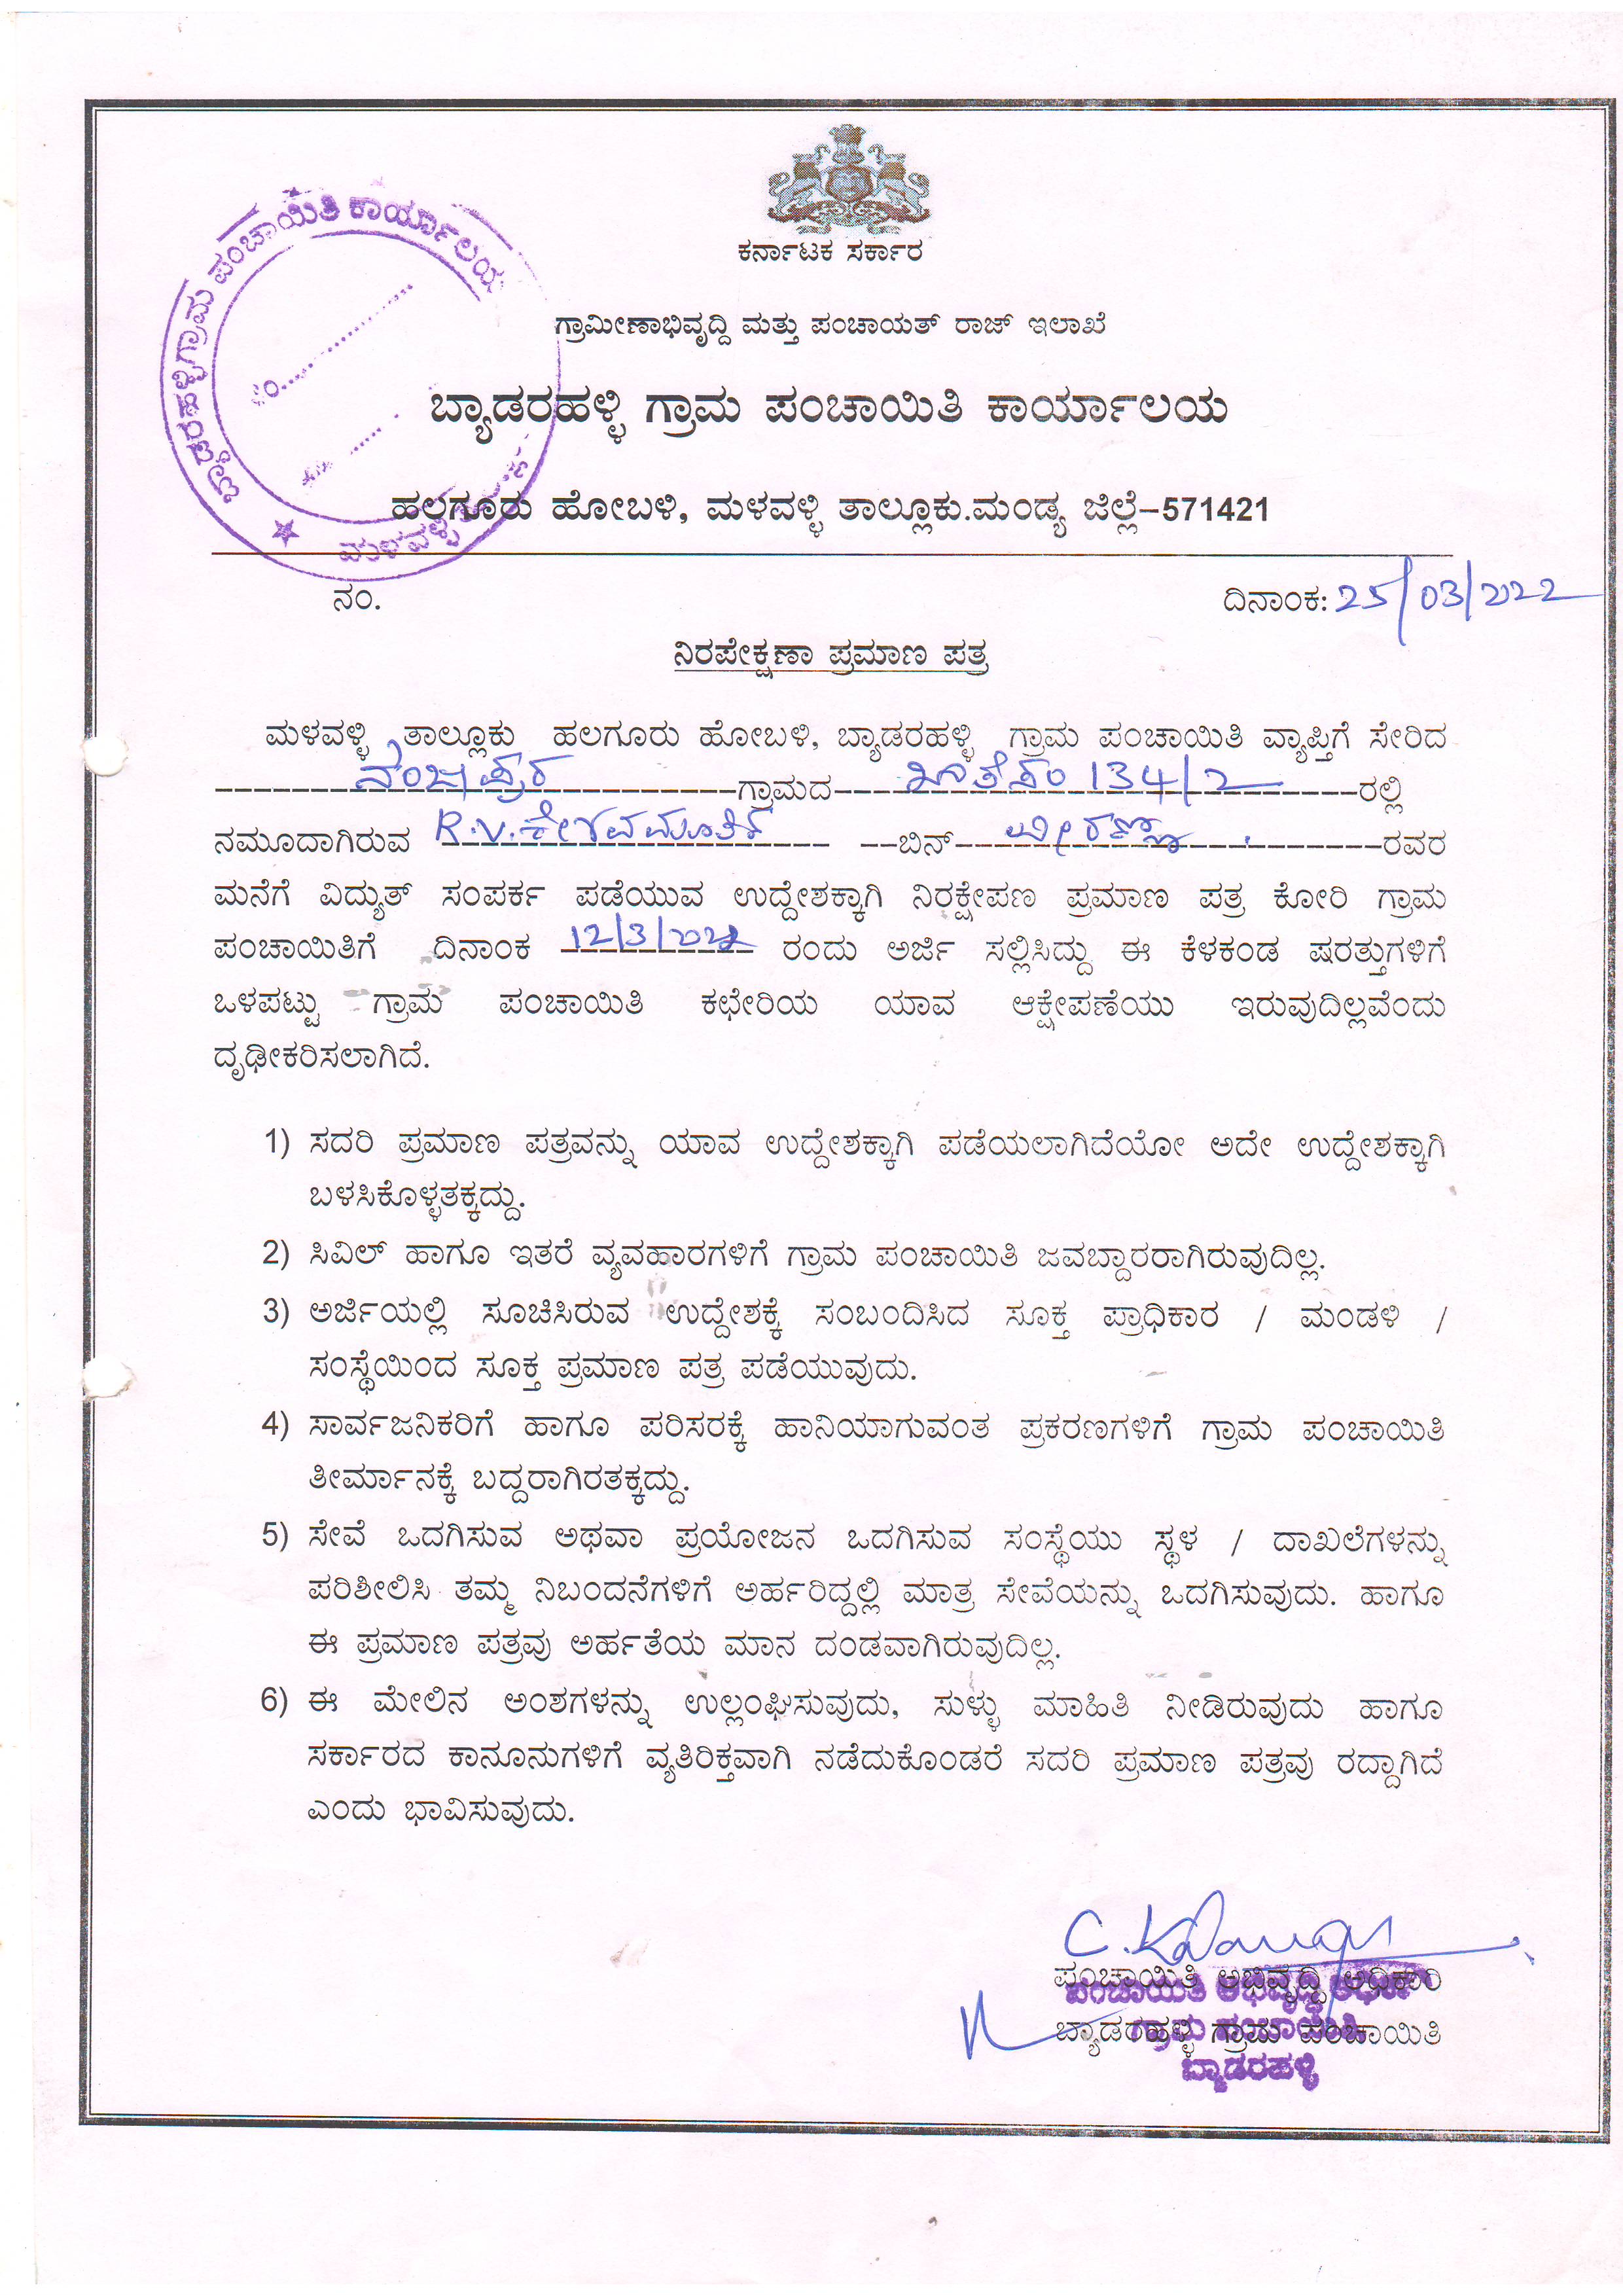 ಬ್ಯಾಡರಹಳ್ಳಿ ಗ್ರಾಮ ಪಂಚಾಯಿತಿ ಕಾರ್ಯಾಲಯ
ಮಳವಳ್ಳಿ
ಕರ್ನಾಟಕ ಸರ್ಕಾರ
ಗ್ರಾಮೀಣಾಭಿವೃದ್ದಿ ಮತ್ತು ಪಂಚಾಯತ್ ರಾಜ್ ಇಲಾಖೆ
ಬ್ಯಾಡರಹಳ್ಳಿ ಗ್ರಾಮ ಪಂಚಾಯಿತಿ ಕಾರ್ಯಾಲಯ
ಹಲಗೂರು ಹೋಬಳಿ, ಮಳವಳ್ಳಿ ತಾಲ್ಲೂಕು.ಮಂಡ್ಯ ಜಿಲ್ಲೆ–571421
ನಂ. ದಿನಾಂಕ: 25/03/2022
ನಿರಪೇಕ್ಷಣಾ ಪ್ರಮಾಣ ಪತ್ರ
ಮಳವಳ್ಳಿ ತಾಲ್ಲೂಕು ಹಲಗೂರು ಹೋಬಳಿ, ಬ್ಯಾಡರಹಳ್ಳಿ ಗ್ರಾಮ ಪಂಚಾಯಿತಿ ವ್ಯಾಪ್ತಿಗೆ ಸೇರಿದ
ನಂಜಾಪ್ರರ ಗ್ರಾಮದ 134/2 ರಲ್ಲಿ
ನಮೂದಾಗಿರುವ R.V.ಕೇಶವಮೂರ್ತಿ ಬಿನ್ ವೀರಣ್ಣ ರವರ
ಮನೆಗೆ ವಿದ್ಯುತ್ ಸಂಪರ್ಕ ಪಡೆಯುವ ಉದ್ದೇಶಕ್ಕಾಗಿ ನಿರಕ್ಷೇಪಣ ಪ್ರಮಾಣ ಪತ್ರ ಕೋರಿ ಗ್ರಾಮ
ಪಂಚಾಯಿತಿಗೆ ದಿನಾಂಕ 12/3/2022 ರಂದು ಅರ್ಜಿ ಸಲ್ಲಿಸಿದ್ದು ಈ ಕೆಳಕಂಡ ಷರತ್ತುಗಳಿಗೆ
ಒಳಪಟ್ಟು ಗ್ರಾಮ ಪಂಚಾಯಿತಿ ಕಛೇರಿಯ ಯಾವ ಆಕ್ಷೇಪಣೆಯು ಇರುವುದಿಲ್ಲವೆಂದು
ದೃಢೀಕರಿಸಲಾಗಿದೆ.
1) ಸದರಿ ಪ್ರಮಾಣ ಪತ್ರವನ್ನು ಯಾವ ಉದ್ದೇಶಕ್ಕಾಗಿ ಪಡೆಯಲಾಗಿದೆಯೋ ಅದೇ ಉದ್ದೇಶಕ್ಕಾಗಿ
ಬಳಸಿಕೊಳ್ಳತಕ್ಕದ್ದು.
2) ಸಿವಿಲ್ ಹಾಗೂ ಇತರೆ ವ್ಯವಹಾರಗಳಿಗೆ ಗ್ರಾಮ ಪಂಚಾಯಿತಿ ಜವಬ್ದಾರರಾಗಿರುವುದಿಲ್ಲ.
3) ಅರ್ಜಿಯಲ್ಲಿ ಸೂಚಿಸಿರುವ ಉದ್ದೇಶಕ್ಕೆ ಸಂಬಂದಿಸಿದ ಸೂಕ್ತ ಪ್ರಾಧಿಕಾರ / ಮಂಡಳಿ /
ಸಂಸ್ಥೆಯಿಂದ ಸೂಕ್ತ ಪ್ರಮಾಣ ಪತ್ರ ಪಡೆಯುವುದು.
4) ಸಾರ್ವಜನಿಕರಿಗೆ ಹಾಗೂ ಪರಿಸರಕ್ಕೆ ಹಾನಿಯಾಗುವಂತ ಪ್ರಕರಣಗಳಿಗೆ ಗ್ರಾಮ ಪಂಚಾಯಿತಿ
ತೀರ್ಮಾನಕ್ಕೆ ಬದ್ದರಾಗಿರತಕ್ಕದ್ದು.
5) ಸೇವೆ ಒದಗಿಸುವ ಅಥವಾ ಪ್ರಯೋಜನ ಒದಗಿಸುವ ಸಂಸ್ಥೆಯು ಸ್ಥಳ / ದಾಖಲೆಗಳನ್ನು
ಪರಿಶೀಲಿಸಿ ತಮ್ಮ ನಿಬಂದನೆಗಳಿಗೆ ಅರ್ಹರಿದ್ದಲ್ಲಿ ಮಾತ್ರ ಸೇವೆಯನ್ನು ಒದಗಿಸುವುದು. ಹಾಗೂ
ಈ ಪ್ರಮಾಣ ಪತ್ರವು ಅರ್ಹತೆಯ ಮಾನ ದಂಡವಾಗಿರುವುದಿಲ್ಲ.
6) ಈ ಮೇಲಿನ ಅಂಶಗಳನ್ನು ಉಲ್ಲಂಘಿಸುವುದು, ಸುಳ್ಳು ಮಾಹಿತಿ ನೀಡಿರುವುದು ಹಾಗೂ
ಸರ್ಕಾರದ ಕಾನೂನುಗಳಿಗೆ ವ್ಯತಿರಿಕ್ತವಾಗಿ ನಡೆದುಕೊಂಡರೆ ಸದರಿ ಪ್ರಮಾಣ ಪತ್ರವು ರದ್ದಾಗಿದೆ
ಎಂದು ಭಾವಿಸುವುದು.
ಪಂಚಾಯಿತಿ ಅಭಿವೃದ್ಧಿ ಅಧಿಕಾರಿ
ಬ್ಯಾಡರಹಳ್ಳಿ ಗ್ರಾಮ ಪಂಚಾಯಿತಿ
ಬ್ಯಾಡರಹಳ್ಳಿ